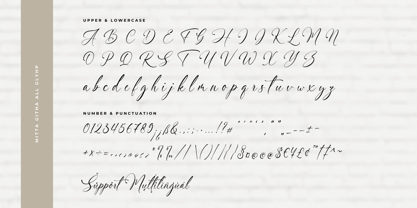 MITTA GITHA ALL GLYPH
UPPER & LOWERCASE
A B C D E F G H I J K L M N
O P Q R S T U V W X Y Z
a b c d e f g h i j k l m n o p q r s t u v w x y z
NUMBER & PUNCTUATION
0123456789
Support Multilingual